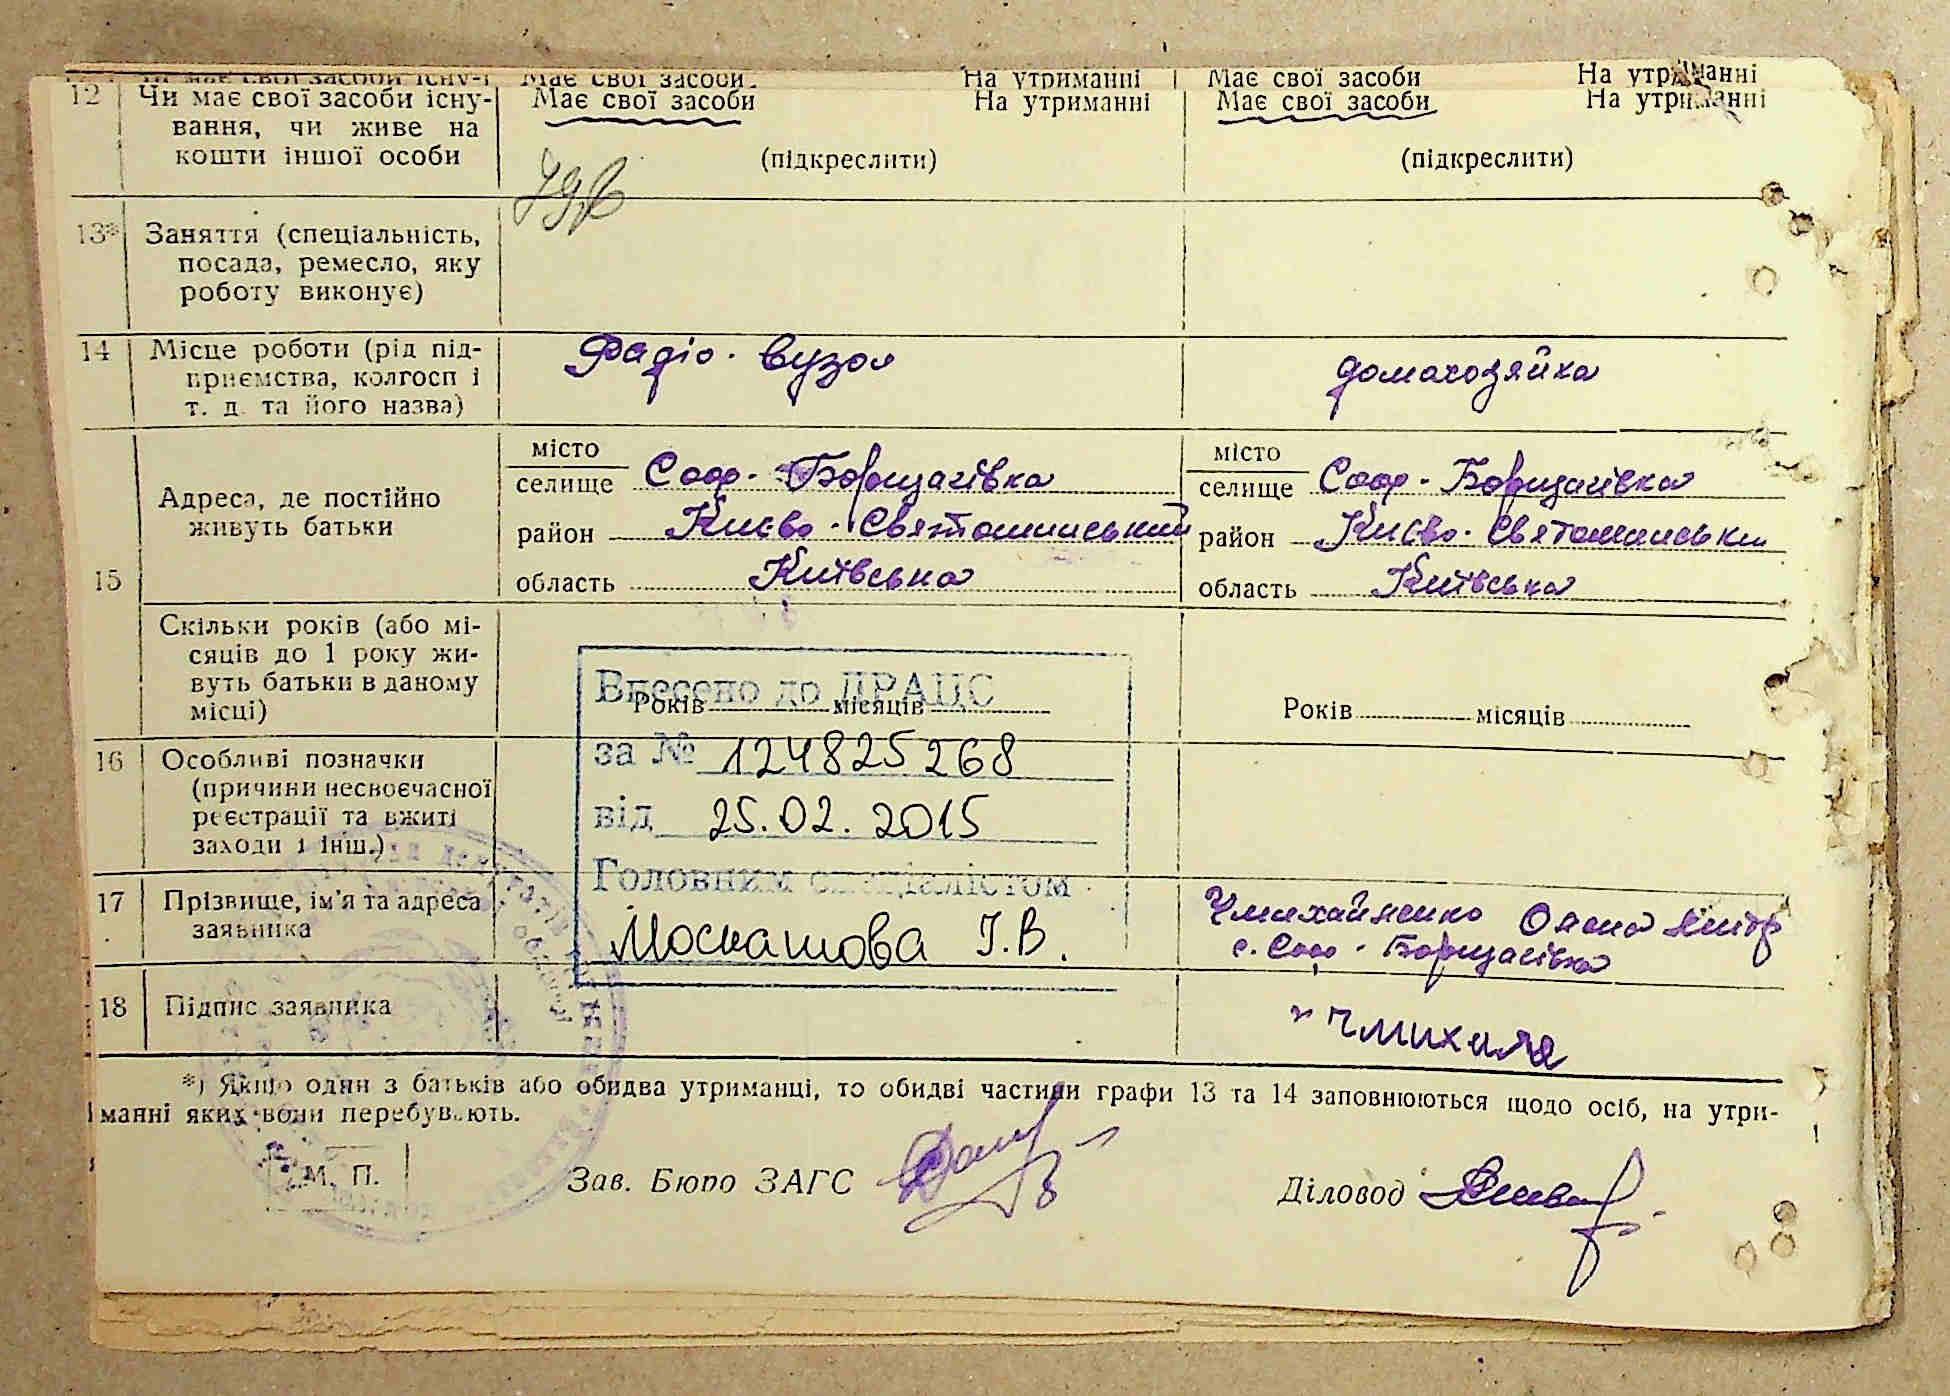 Має свої засоби На утриманні Має свої засоби На утриманні
12 Чи має свої засоби існу-
вання, чи живе на
кошти іншої особи
Має свої засоби На утриманні
(підкреслити)
Має свої засоби На утриманні
(підкреслити)
13* Заняття (спеціальність,
посада, ремесло, яку
роботу виконує)
14 Місце роботи (рід під-
приємства, колгосп і
т. д. та його назва)
Радіо-вузол
домахозяйка
15
Адреса, де постійно
живуть батьки
місто
селище Соф-Борщагівка
район Києво-Святошинський
область Київська
місто
селище Соф-Борщагівка
район Києво-Святошинськ
область Київська
Скільки років (або мі-
сяців до 1 року жи-
вуть батьки в даному
місці)
Років місяців
Років місяців
Внесено до ДРАЦС
за № 124825268
від 25.02.2015
Головним спеціалістом
Москашова І.В.
16 Особливі позначки
(причини несвоєчасної
реєстрації та вжиті
заходи і інш.)
17 Прізвище, ім'я та адреса
заявника
Чмихайненко Олена
с. Соф-Борщагівка
18 Підпис заявника
*) Якщо один з батьків або обидва утриманці, то обидві частини графи 13 та 14 заповнюються щодо осіб, на утри-
манні яких вони перебувають.
М. П.
Зав. Бюро ЗАГС
Діловод